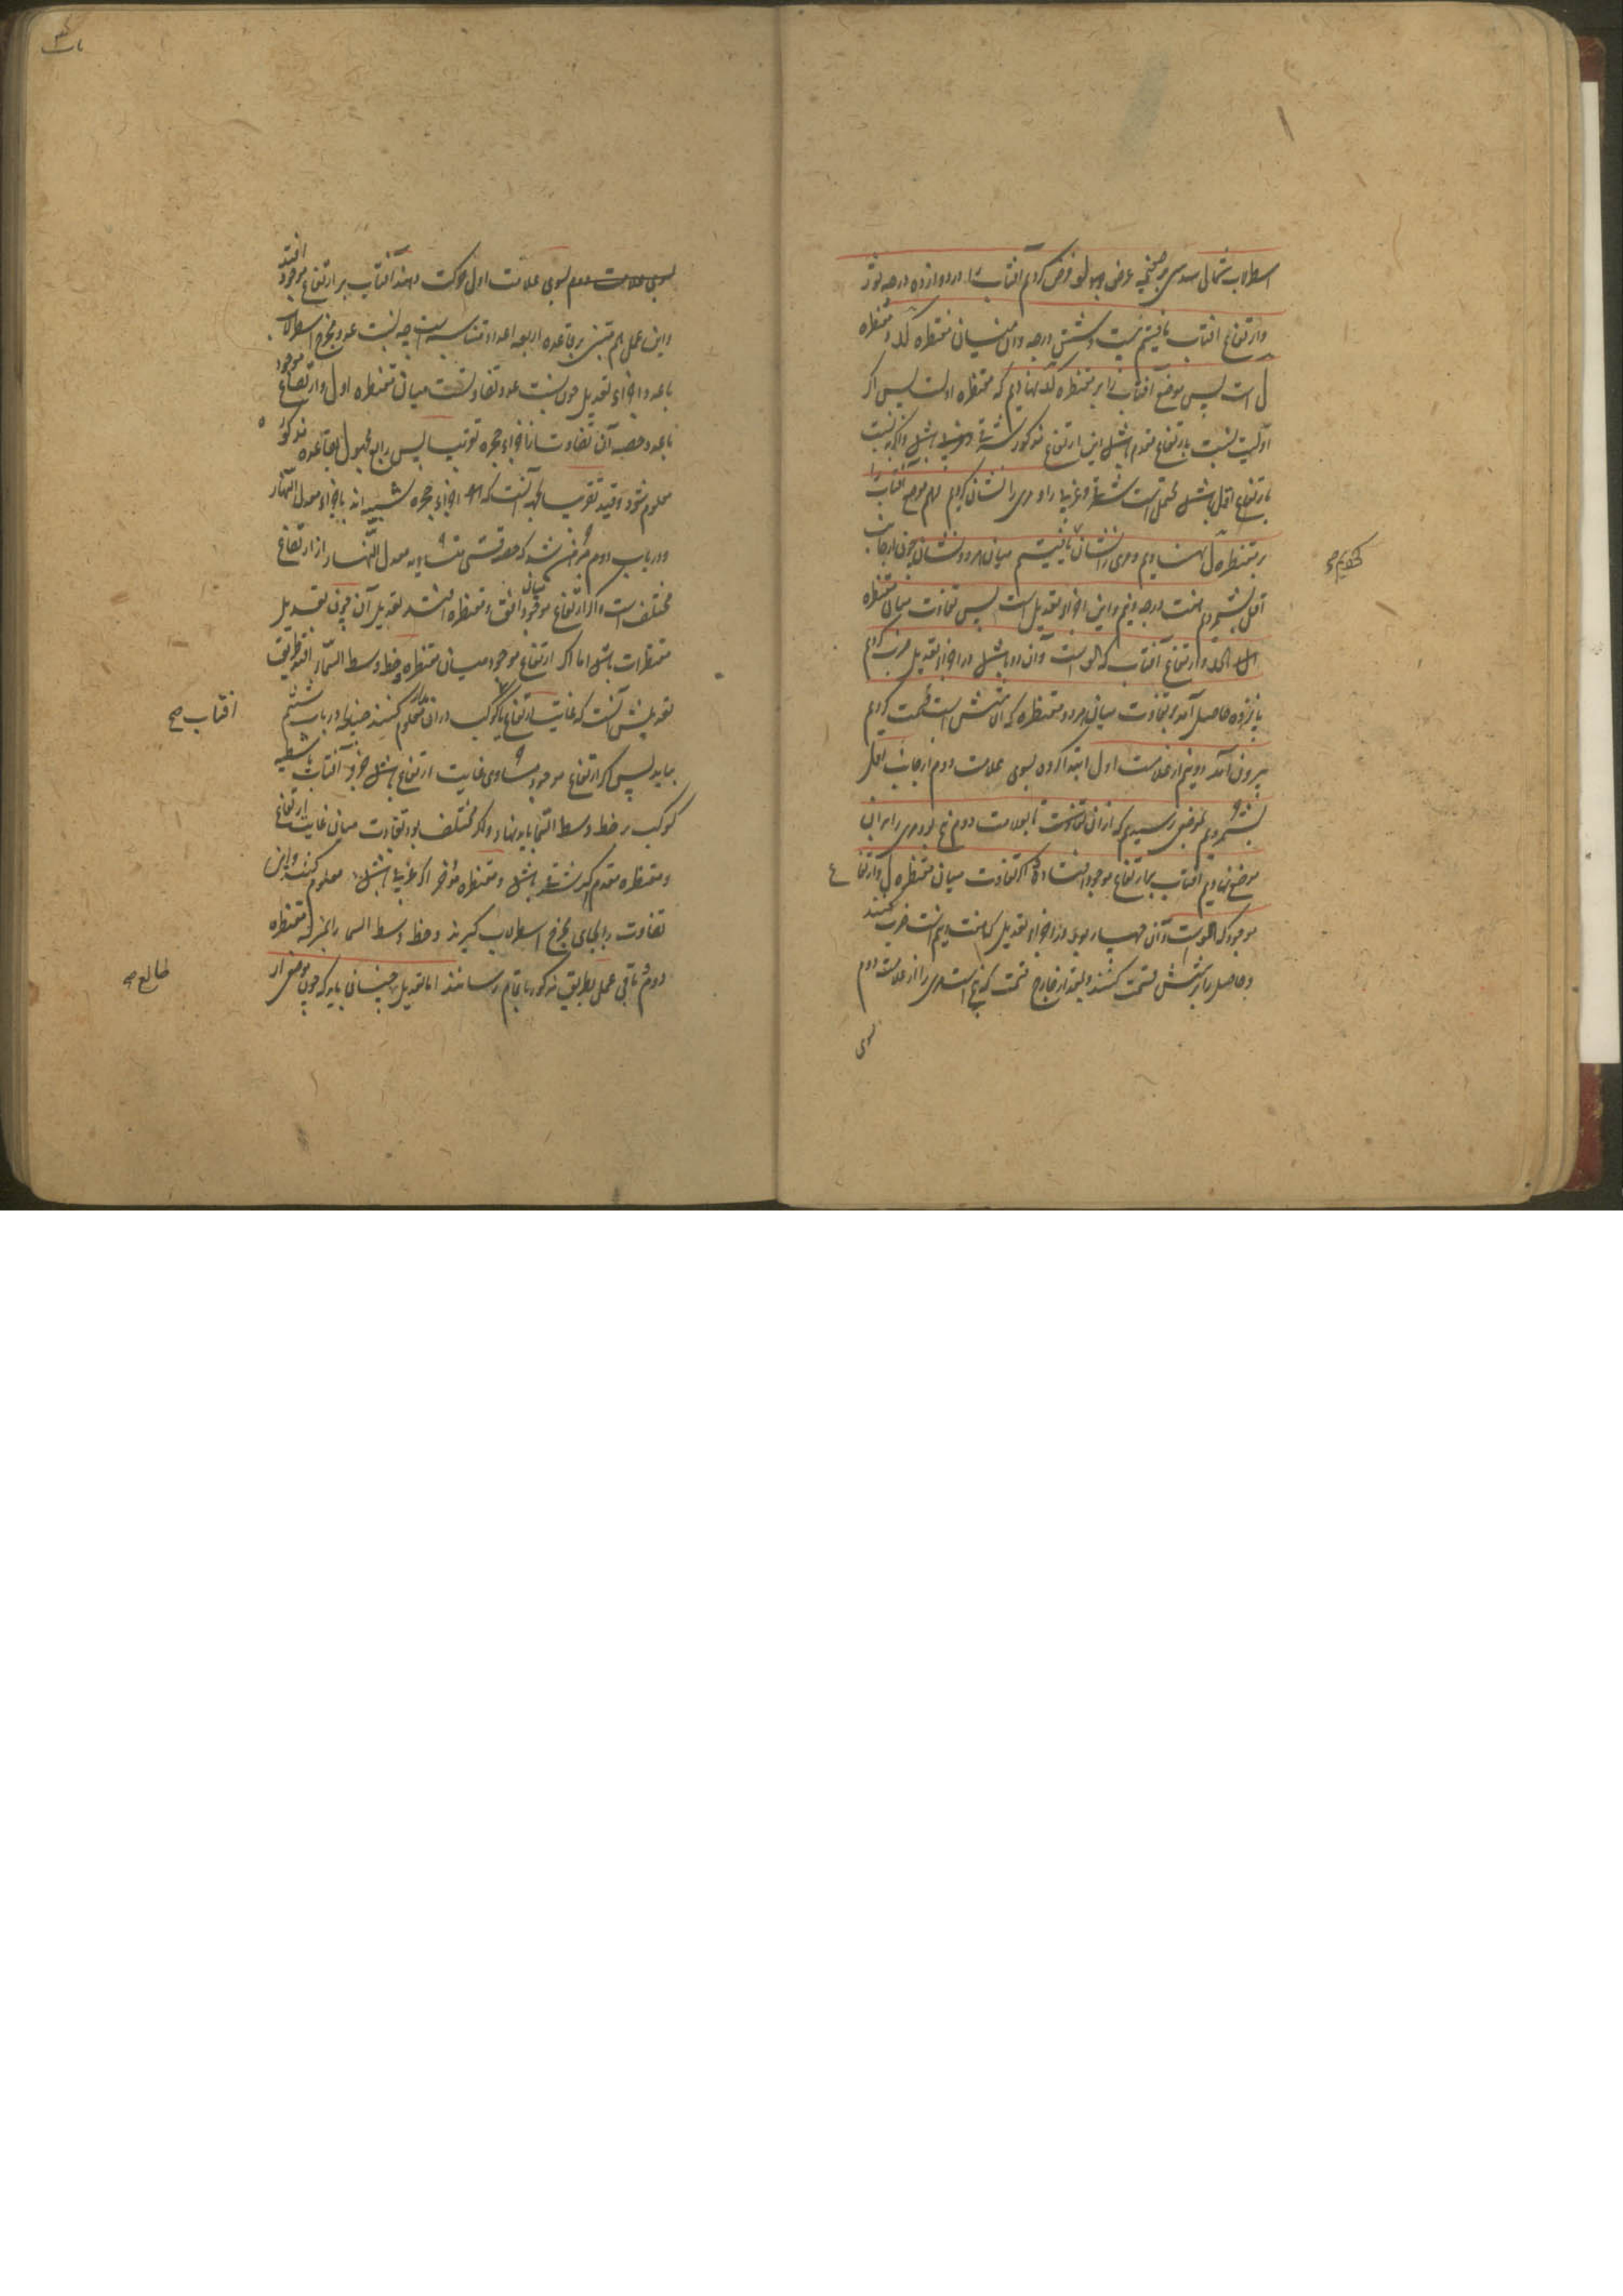 اسطرلاب شمالی سدسی بر صفحه عرض لو فرض کردیم آفتاب را در دوازده درجه ثور
وارتفاع آفتاب یافتیم بیست و شش درجه و آن میان مقنطره کد و مقنطره
ل است پس موضع آفتاب را بر مقنطره کد نهادیم که مقنطره اولست پس اگر
اولیت نسبت بارتفاع مقدم باشد این ارتفاع مذکور شرقی باشد واگر نسبت
بارتفاع اقل باشد محتمل است شرقی و غربی را و مری را نشان کردیم و هم موضع آفتاب را
بر مقنطره ل نهادیم و مری را نشان یافتیم میان هر دو نشان چون از جانب
کردیم صح
اقل بشمردیم هفت درجه و نیم و این اجزاء تعدیل است پس تفاوت میان مقنطره
اول و ارتفاع آفتاب که کوست و آن دو باشد در اجزاء تعدیل ضرب کردیم
پانزده حاصل آمد بر تفاوت میان هر دو مقنطره که آن شش است قسمت کردیم
بیرون آمد دو نیم از علامت اول ابتدا کرده بسوی علامت دوم از جانب اقل
بشمردیم بموضعی رسیدیم که از آن تفاوت تا بعلامت دوم پنج بود مری را بر آن
موضع نهادیم آفتاب بر ارتفاع موجود افتاد و اگر تفاوت میان مقنطره ل و ارتفاع
موجود که کوست و آن چهار بود در اجزاء تعدیل که هفت و نیم است ضرب کنند
و حاصل را بر شش قسمت کنند و بقدر خارج قسمت که پنج است مری را از علامت دوم
بسوی
بسوی علامت اول حرکت دهند آفتاب بر ارتفاع موجود افتد
واین عمل هم مبتنی بر قاعده اربعه اعداد متناسبه است چه نسبت عدد مخرج اسطرلاب
با عدد اجزاء تعدیل چون نسبت عدد تفاوتست میان مقنطره اول و ارتفاع موجود
با عدد حصه آن تفاوت از اجزاء حجره تقریبا پس رابع مجهول بقاعده مذکوره
معلوم شود و قید تقریبا بجهة آنست که اجزاء حجره شبیه اند باجزاء معدل النهار
و در باب دوم مبرهن شد که حصه قسی متساویه معدل النهار از ارتفاع
مختلف است و اگر ارتفاع موجود میان افق و مقنطره افتد تعدیل آن چون تعدیل
مقنطرات باشد اما اگر ارتفاع موجود میان مقنطره و خط وسط السماء افتد طریق
تعدیلش آنست که غایت ارتفاع یا کوکب در آن روز معلوم کنند چنانچه در باب ششم
آفتاب صح
بیاید پس اگر ارتفاع موجود مساوی غایت ارتفاع باشد جزو آفتاب یا شظیه
کوکب بر خط وسط السما باید نهاد و اگر مختلف بود تفاوت میان غایت ارتفاع
و مقنطره مقدم اگر شرقی باشد و مقنطره مؤخر اگر غربی باشد معلوم کنند و این
تفاوت را بجای مخرج اسطرلاب گیرند و خط وسط السما را بمنزله مقنطره
دوم و باقی عمل بطریق مذکور باتمام رسانند اما تعدیل چنان باید که چون موضع از
طالع صح